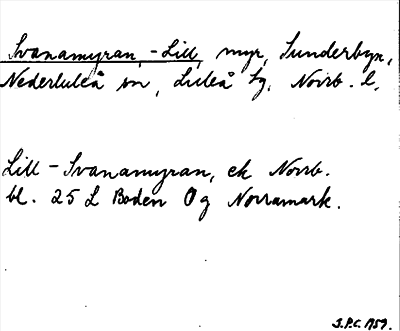 Svanamyran, -Lill, myr, Sunderbyn,
Nederluleå sn, Luleå tg, Norrb. l.
Lill-Svanamyran, ek Norrb.
bl. 25 L Boden Og Norramark.
J.P.C. 1959.